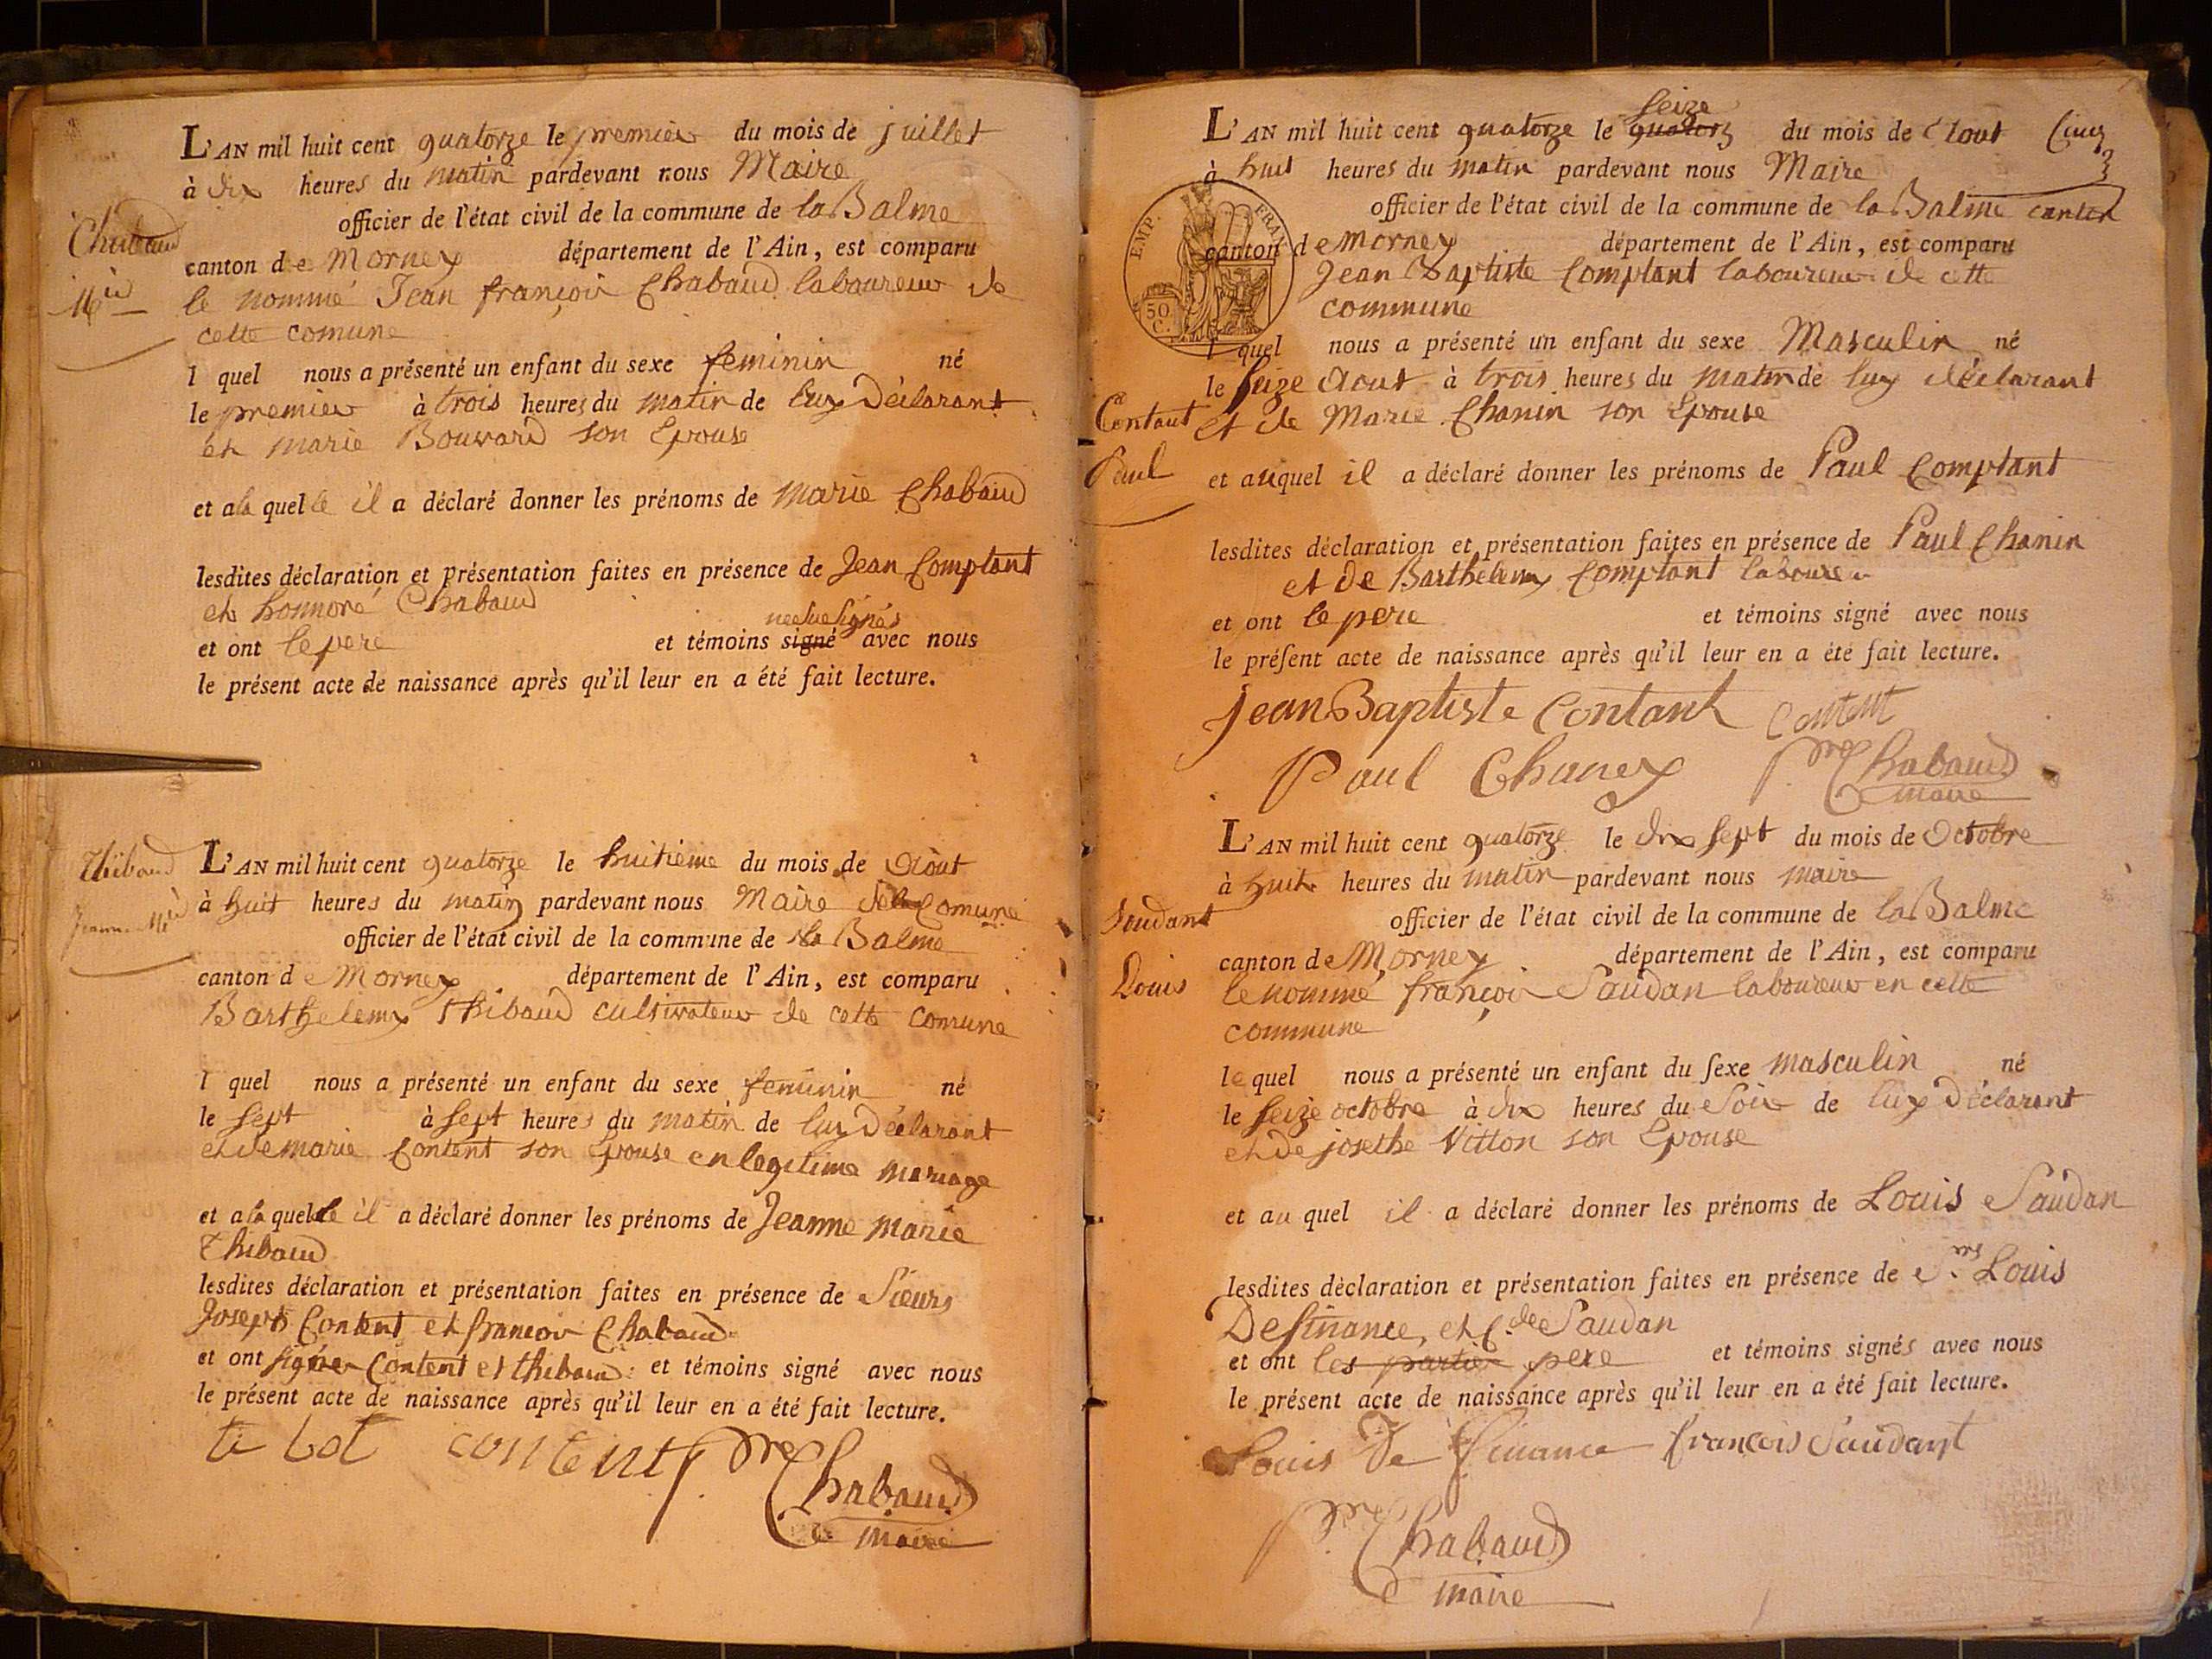 L'AN mil huit cent quatorze le premier du mois de juillet
à dix heures du matin pardevant nous Maire
officier de l'état civil de la commune de la Balme
Chabaud
canton de Mornex département de l'Ain, est comparu
Mie le nommé Jean françois Chabaud laboureur de
cette comune
l quel nous a présenté un enfant du sexe feminin né
le premier à trois heures du matin de luy Déclarant
et marie Bouvard son Epouse
et a la quelle il a déclaré donner les prénoms de marie Chabaud
lesdites déclaration et présentation faites en présence de Jean Comptant
et honnoré Chabaud
et ont le pere et témoins signé avec nous
le présent acte de naissance après qu'il leur en a été fait lecture.
Thibaud
Jeanne Mie
L'AN mil huit cent quatorze le huitieme du mois de Aout
à huit heures du matin pardevant nous Maire de la Comune
officier de l'état civil de la commune de la Balme
canton de Mornex département de l'Ain, est comparu
Barthelemy thibaud cultivateur de cette comune
l quel nous a présenté un enfant du sexe feminin né
le sept à sept heures du matin de luy Déclarant
et de marie Content son Epouse en legitime mariage
et a la quelle il a déclaré donner les prénoms de Jeanne marie
Thibaud
lesdites déclaration et présentation faites en présence de Sieurs
Joseph Content et françois Chabaud
et ont signer Content et thibaud et témoins signé avec nous
le présent acte de naissance après qu'il leur en a été fait lecture.
ti bot content pre Chabaud
maire
L'AN mil huit cent quatorze le quatorz seize du mois de Aout Cinq
à huit heures du matin pardevant nous Maire
officier de l'état civil de la commune de la Balme canton
EMP. FRAN
50 C.
canton de Mornex département de l'Ain, est comparu
Jean Baptiste Comptant laboureur de cette
commune
l quel nous a présenté un enfant du sexe Masculin né
le seize Aout à trois heures du matin de luy déclarant
Contant et de Marie Chanin son Epouse
Paul et auquel il a déclaré donner les prénoms de Paul Comptant
lesdites déclaration et présentation faites en présence de Paul Chanin
et de Barthelemy Comptant laboureur
et ont le pere et témoins signé avec nous
le présent acte de naissance après qu'il leur en a été fait lecture.
Jean Baptiste Contant Content
Paul Chanex pre Chabaud
maire
L'AN mil huit cent quatorze le dix sept du mois de Octobre
à huit heures du matin pardevant nous maire
Soudant officier de l'état civil de la commune de la Balme
Louis
canton de Mornex département de l'Ain, est comparu
le nommé françois Saudan laboureur en cette
commune
lequel nous a présenté un enfant du sexe masculin né
le seize octobre à dix heures du Soir de luy Déclarant
et de josethe Vitton son Epouse
et au quel il a déclaré donner les prénoms de Louis Saudan
lesdites déclaration et présentation faites en présence de Srs Louis
Definance, et Cde Saudan
et ont les partie pere et témoins signés avec nous
le présent acte de naissance après qu'il leur en a été fait lecture.
Louis De finance françois Saudant
pre Chabaud
maire